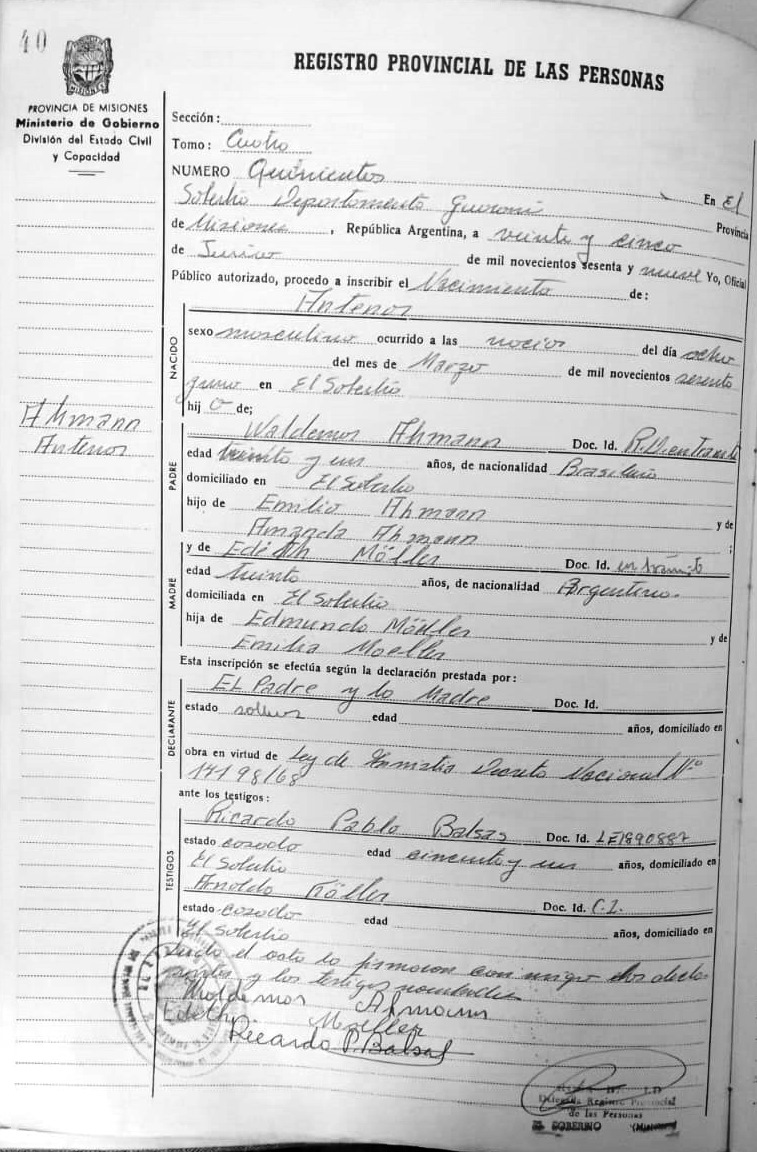 40
REGISTRO PROVINCIAL DE LAS PERSONAS
PROVINCIA DE MISIONES
Ministerio de Gobierno
División del Estado Civil
y Capacidad
Sección:
Tomo: Cuatro
NUMERO Quinientos En El
Soberbio Departamento Guarani Provincia
de Misiones, República Argentina, a veinte y cinco
de Junio de mil novecientos sesenta y nueve Yo, Oficial
Público autorizado, procedo a inscribir el Nacimiento de:
Antenor
NACIDO
sexo masculino ocurrido a las del día ocho
del mes de Marzo de mil novecientos sesenta
en El Soberbio
hijo de;
Ahmann
Antenor
PADRE
Waldemar Ahmann Doc. Id.
edad treinta y un años, de nacionalidad Brasileño
domiciliado en El Soberbio
hijo de Emilio Ahmann y de
Amanda Ahmann ;
MADRE
y de Edith Möller Doc. Id. en trámite
edad treinta años, de nacionalidad Argentina.
domiciliada en El Soberbio
hija de Edmundo Möller y de
Emilia Moeller
Esta inscripción se efectúa según la declaración prestada por:
DECLARANTE
El Padre y la Madre Doc. Id.
estado edad años, domiciliado en
obra en virtud de Ley de Amnistia Decreto Nacional Nº
17198/68
ante los testigos:
TESTIGOS
Ricardo Pablo Balsas Doc. Id. LE1890887
estado casado edad cincuenta y un años, domiciliado en
El Soberbio
Arnoldo Doc. Id. C.I.
estado casado edad años, domiciliado en
El Soberbio
el acta la firmaron conmigo los decla-
rantes y los testigos nombrados
Waldemar Ahmann
Edith Moeller
Ricardo P. Balsas
Delegada Registro Provincial
de las Personas
EL SOBERBIO (Misiones)